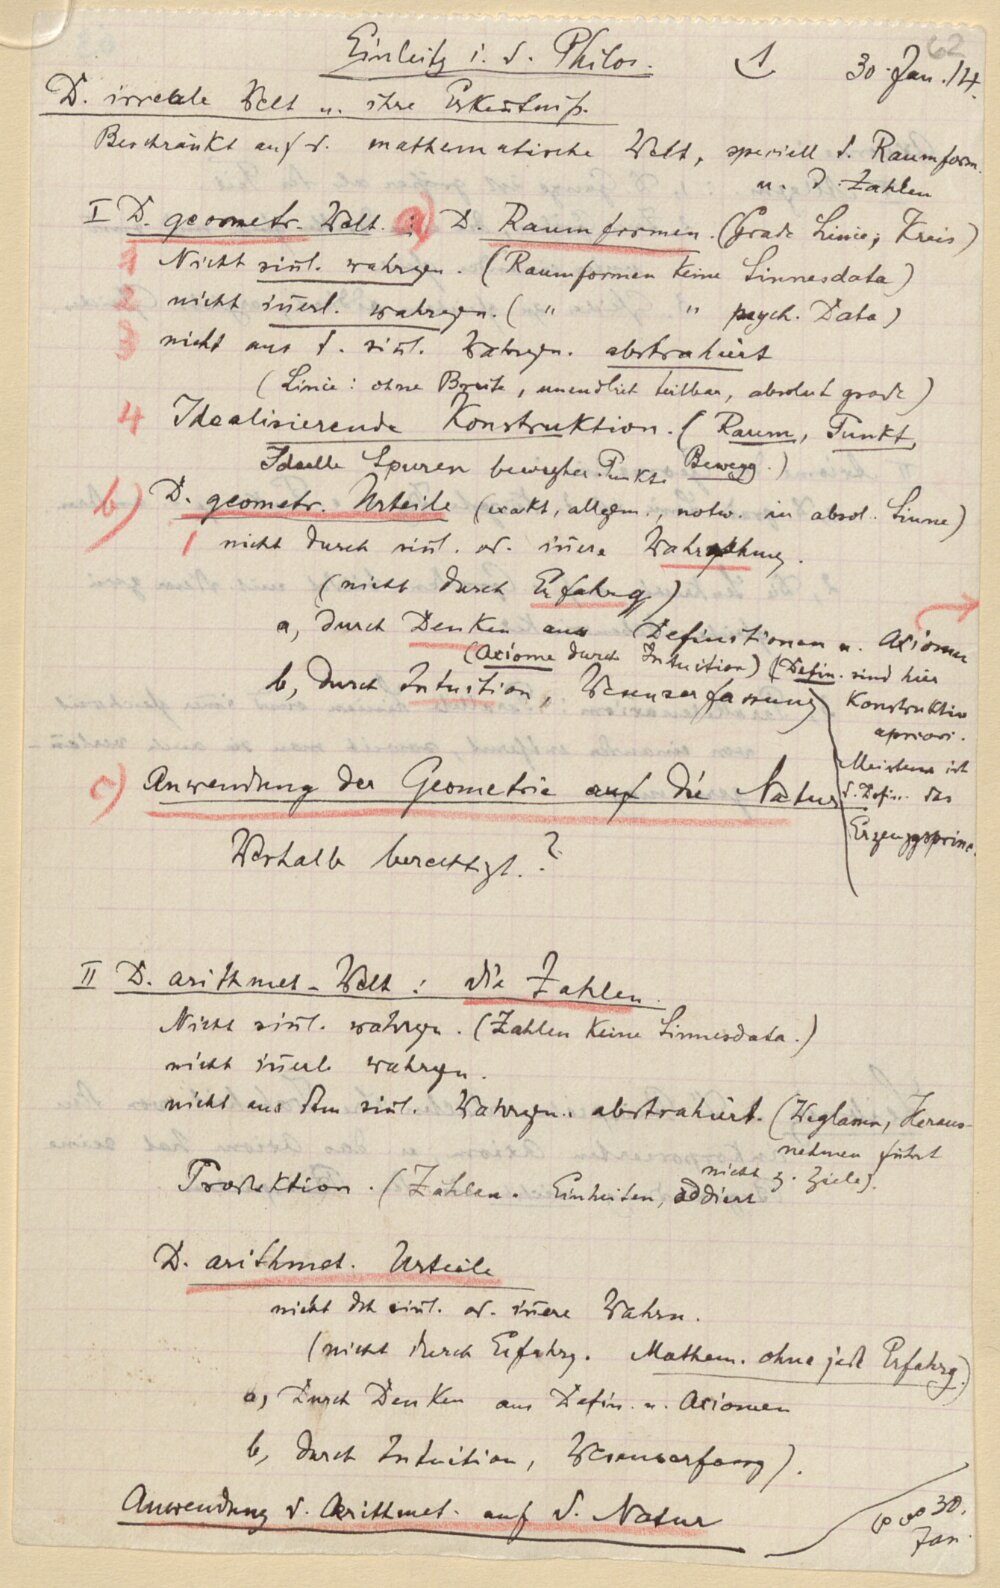 62
Einleitg i. d. Philos. 1 30. Jan. 14.
D. irreale Welt u. ihre Erkeñtniß.
Beschränkt auf d. mathematische Welt, speciell d. Raumform.
u. d. Zahlen
I D. geometr. Welt. : a) D. Raumformen. (Grade Linie, Kreis)
1 Nicht siñl. wahrgen. (Raumformen keine Sinnesdata)
2 nicht iñerl. wahrgen. ( " " psych. Data)
3 nicht aus d. siñl. Wahrgen. abstrahiert
(Linie: ohne Breite, unendlich teilbar, absolut grade)
4 Idealisierende Konstruktion. (Raum, Punkt,
Ideelle Spuren bewegter Punkte Bewegg.)
b) D. geometr. Urteile (exakt, allgem., notw. im absol. Sinne)
1 nicht durch siñl. od. iñere Wahrnehmung.
(nicht durch Erfahrg)
a, durch Denken aus Definitionen u. Axiomen
(Axiome durch Intuition) (Defin. sind hier
b, durch Intuition, Wesenserfassung) Konstruktion
apriori.
Meistens ist
c) Anwendung der Geometrie auf die Natur d. Defin. das
Erzeuggsprinc.
Weshalb berechtigt.?
II D. arithmet. Welt: die Zahlen.
Nicht siñl. wahrgen. (Zahlen keine Sinnesdata.)
nicht iñerl. wahrgen.
nicht aus dem siñl. Wahrgen. abstrahiert. (Weglassen, Heraus-
nehmen führt
nicht z. Ziele).
Produktion. (Zählen. Einheiten, addiert
D. arithmet. Urteile
nicht dch siñl. od. iñere Wahrn.
(nicht durch Erfahrg. Mathem. ohne jede Erfahrg.)
a, Durch Denken aus Defin. u. Axiomen
b, durch Intuition, Wesenserfassg).
Anwendung d. Arithmet. auf d. Natur
30.
Jan